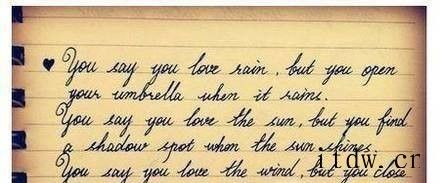 ♥ You say you love rain, but you open
your umbrella when it rains.
You say you love the sun, but you find
a shadow spot when the sun shines.
You say you love the wind, but you close
itdw.cr